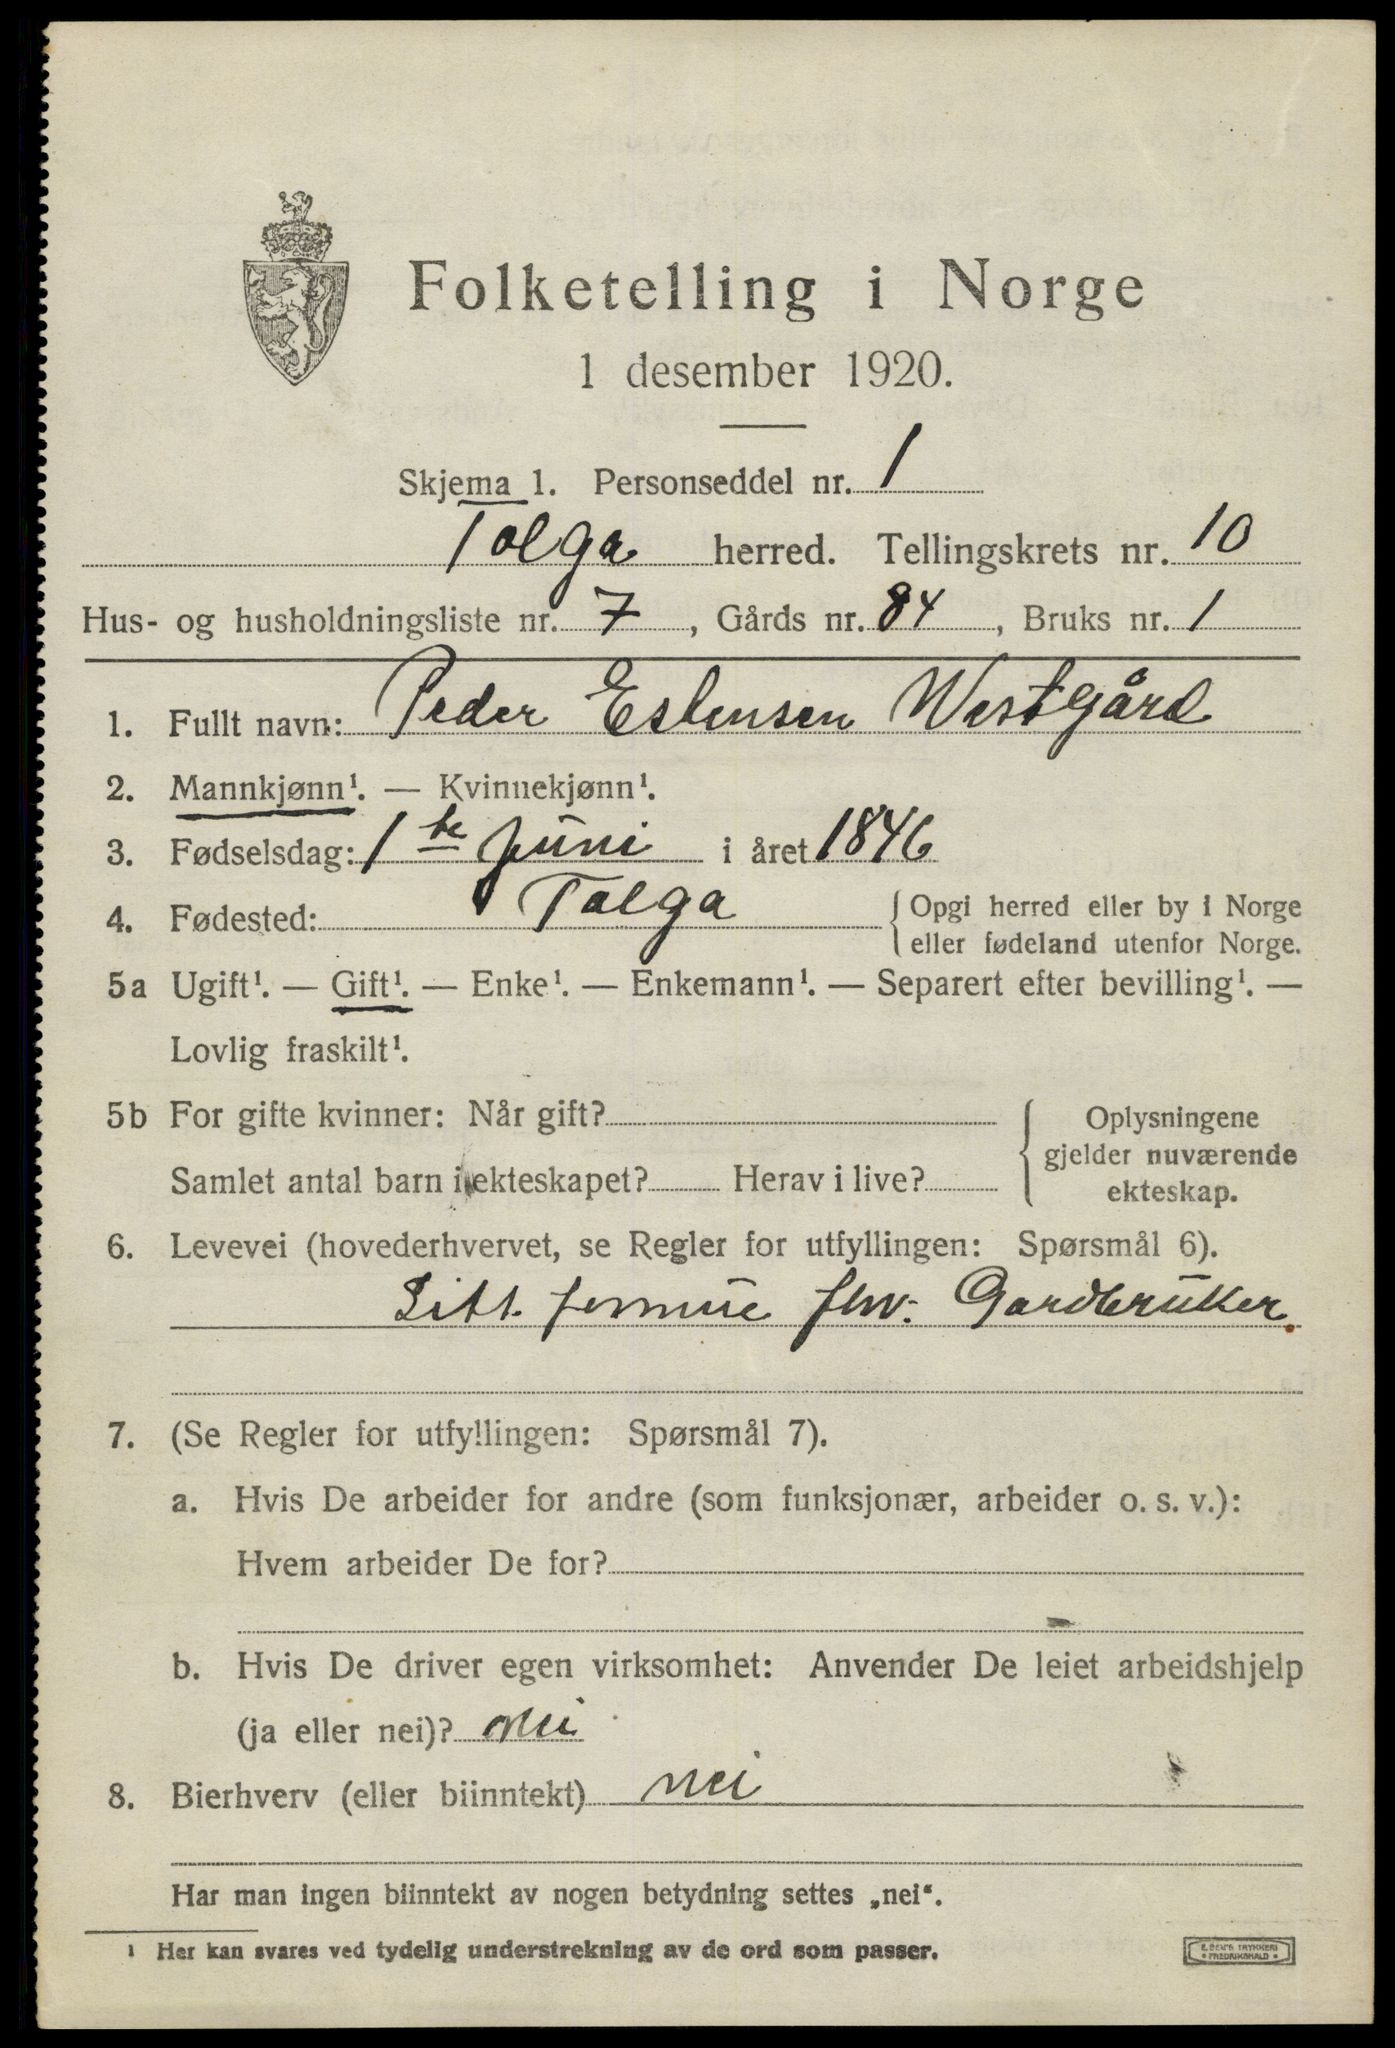 Folketelling i Norge
1 desember 1920.
Skjema 1. Personseddel nr. 1
Tolga herred. Tellingskrets nr. 10
Hus- og husholdningsliste nr. 7, Gårds nr. 84, Bruks nr. 1
1. Fullt navn: Peder Estensen Westgård
2. Mannkjønn¹. — Kvinnekjønn¹.
3. Fødselsdag: 1 te Juni i året 1846
4. Fødested: Tolga { Opgi herred eller by i Norge
eller fødeland utenfor Norge.
5a Ugift¹. — Gift¹. — Enke¹. — Enkemann¹. — Separert efter bevilling¹. —
Lovlig fraskilt¹.
5b For gifte kvinner: Når gift? { Oplysningene
gjelder nuværende
Samlet antal barn i ekteskapet? Herav i live? ekteskap.
6. Levevei (hovederhvervet, se Regler for utfyllingen: Spørsmål 6).
formue fhv. Gardbruker.
7. (Se Regler for utfyllingen: Spørsmål 7).
a. Hvis De arbeider for andre (som funksjonær, arbeider o. s. v.):
Hvem arbeider De for?
b. Hvis De driver egen virksomhet: Anvender De leiet arbeidshjelp
(ja eller nei)? nei
8. Bierhverv (eller biinntekt) nei
Har man ingen biinntekt av nogen betydning settes „nei“.
¹ Her kan svares ved tydelig understrekning av de ord som passer.
E. SEM'S TRYKKERI
• FREDRIKSHALD •